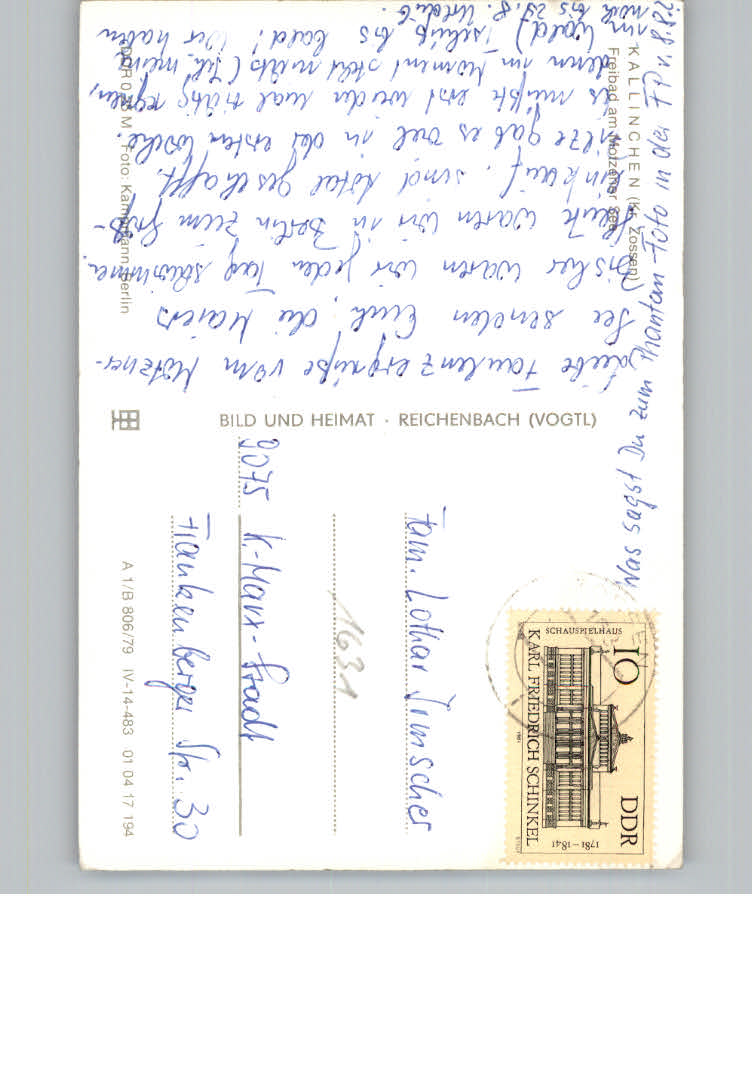 KALLINCHEN (Kr. Zossen)
Freibad am Motzener See
Liebe Faulenzergrüße vom Motzner-
See senden Euch, die Maiers
Bisher waren wir jeden Tag schwimmen.
Heute waren wir in Berlin zum Groß-
einkauf, sind total geschafft.
Pilze gab es viel in der ersten Woche.
Es müßte erst wieder mal richtig regnen,
denn im Moment steht nichts (Ich meine
im Wald) Tschüß bis bald! Wir haben
noch bis 29.8. Urlaub.
Was sagst Du zum Phantom-Foto in der FP v. 8.82
DDR 0,20 M Foto: Kampmann, Berlin
BILD UND HEIMAT · REICHENBACH (VOGTL)
Fam. Lothar Irmscher
1631
9075 K.-Marx-Stadt
Frankenberger Str. 30
A 1/B 806/79 IV-14-483 01 04 17 194
10 DDR
SCHAUSPIELHAUS
1781–1841
KARL FRIEDRICH SCHINKEL
1981